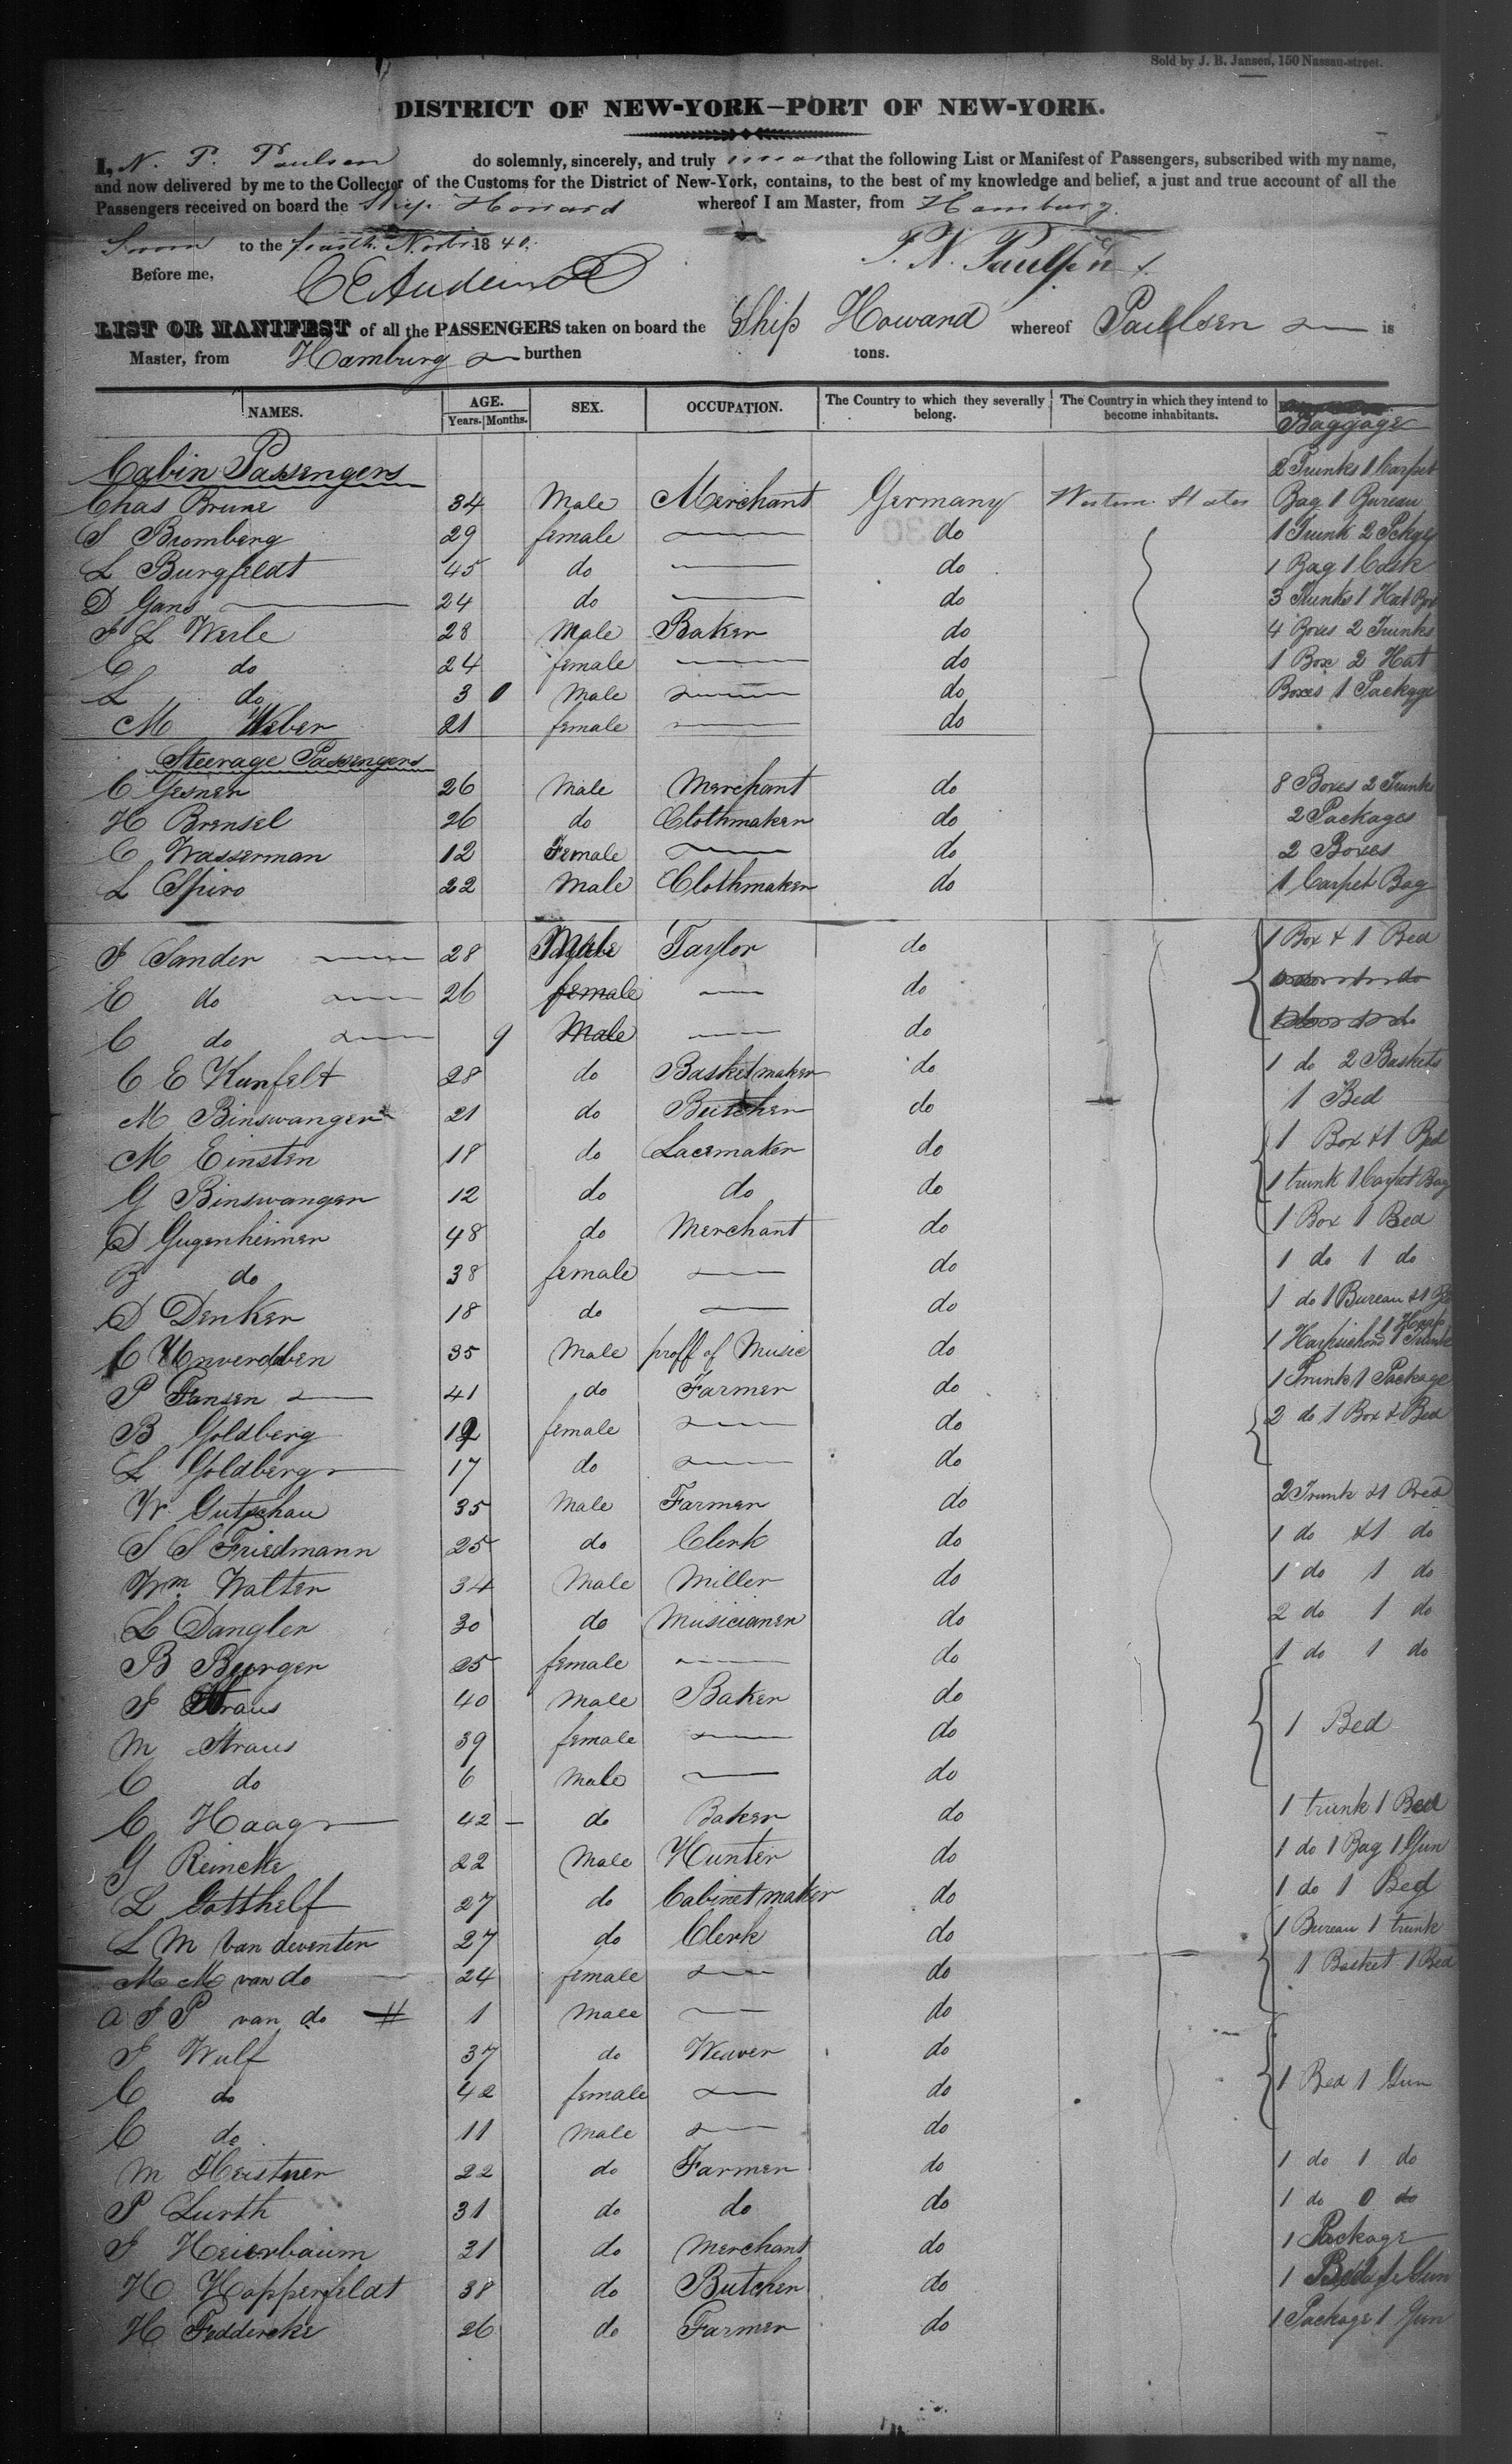 Sold by J. B. Jansen, 150 Nassau-street.
DISTRICT OF NEW-YORK—PORT OF NEW-YORK.
I, N. P. Paulsen do solemnly, sincerely, and truly that the following List or Manifest of Passengers, subscribed with my name,
and now delivered by me to the Collector of the Customs for the District of New-York, contains, to the best of my knowledge and belief, a just and true account of all the
Passengers received on board the Ship Howard whereof I am Master, from Hamburg
Sworn to the fourth Novbr 1840.
P. N. Paulsen
Before me,
LIST OR MANIFEST of all the PASSENGERS taken on board the Ship Howard whereof Paulsen is
Master, from Hamburg burthen tons.
NAMES. AGE. Years. Months. SEX. OCCUPATION. The Country to which they severally belong. The Country in which they intend to become inhabitants. Baggage
Cabin Passengers 2 Trunks 1 Carpet
Chas Brune 34 Male Merchant Germany Western States Bag 1 Bureau
S Bromberg 29 female do 1 Trunk 2 Pckgs
L Burgfeldt 45 do do 1 Bag 1 Cask
D Gans 24 do do 3 Trunks 1 Hat Box
J L Werle 28 Male Baker do 4 Boxes 2 Trunks
C do 24 female do 1 Box 2 Hat
L do 3 0 Male do Boxes 1 Package
M Weber 21 female do
Steerage Passengers
C Gesner 26 Male Merchant do 8 Boxes 2 Trunks
H Brensel 26 do Clothmaker do 2 Packages
C Wasserman 12 Female do 2 Boxes
L Spiro 22 Male Clothmaker do 1 Carpet Bag
J Sander 28 Male Taylor do 1 Box & 1 Bed
E do 26 female do
C do 9 Male do
C E Kunfelt 28 do Basketmaker do 1 do 2 Baskets
M Binswanger 21 do Butcher do 1 Bed
M Einsten 18 do Lacemaker do 1 Box & 1 Bed
G Binswanger 12 do do do 1 trunk 1 Carpet Bag
D Gugenheimer 48 do Merchant do 1 Box 1 Bed
B do 38 female do 1 do 1 do
D Denker 18 do do 1 do 1 Bureau & 1
C Unverdben 35 Male proff of Music do 1 Harpsichord 1 Harp 1 Trunk
P Jansen 41 do Farmer do 1 Trunk 1 Package
B Goldberg 19 female do 2 do 1 Box & Bed
L Goldberg 17 do do
W Gutschau 35 Male Farmer do 2 Trunk & 1 Bed
S S Friedmann 25 do Clerk do 1 do & 1 do
Wm Walter 34 Male Miller do 1 do 1 do
L Dangler 30 do Musicianer do 2 do 1 do
B Burger 25 female do 1 do 1 do
J Straus 40 Male Baker do
M Straus 39 female do 1 Bed
C do 6 Male do
C Haag 42 do Baker do 1 trunk 1 Bed
G Reincke 22 Male Hunter do 1 do 1 Bag 1 Gun
L Gotthelf 27 do Cabinet maker do 1 do 1 Bed
L M Van deventer 27 do Clerk do 1 Bureau 1 trunk
M M van do 24 female do 1 Basket 1 Bed
A J P van do 1 Male do
J Wulf 37 do Weaver do
C do 42 female do 1 Bed 1 Gun
C do 11 Male do
M Heistner 22 do Farmer do 1 do 1 do
P Lurth 31 do do do 1 do 0 do
J Heierbaum 31 do Merchant do 1 Package
H Hopperfeldt 38 do Butcher do 1 Bed 1 Gun
H Feddercke 26 do Farmer do 1 Package 1 Gun